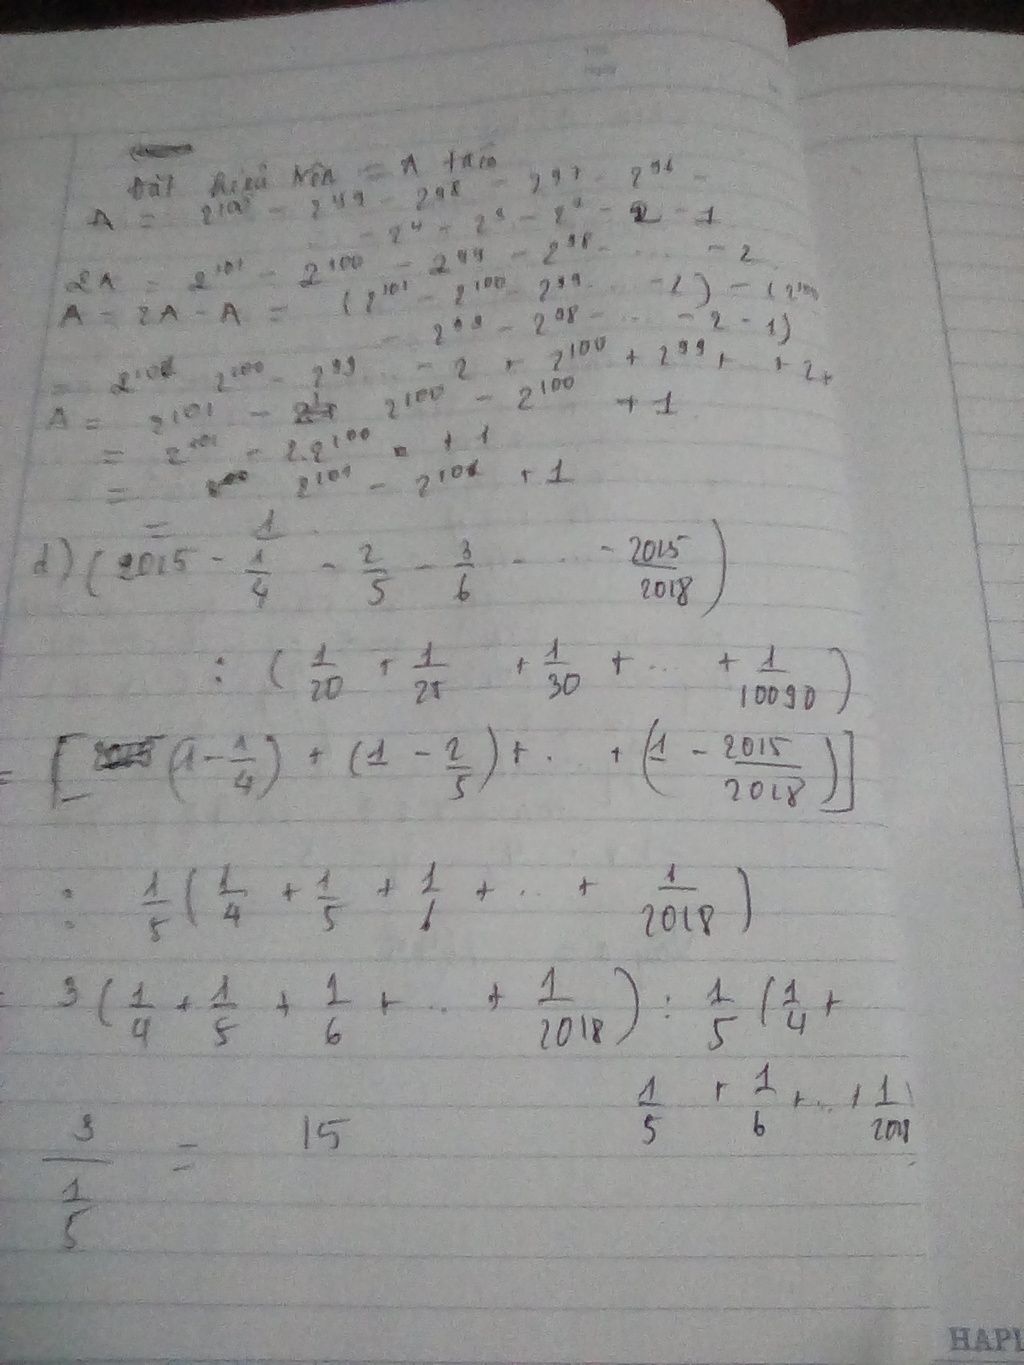 Đặt biểu trên = A
A = 2¹⁰⁰ - 2⁹⁹ - 2⁹⁸ - 2⁹⁷ - 2⁹⁶ -
- 2⁴ - 2³ - 2² - 2 - 1
2A = 2¹⁰¹ - 2¹⁰⁰ - 2⁹⁹ - 2⁹⁸ - ... - 2
A = 2A - A = (2¹⁰¹ - 2¹⁰⁰ - 2⁹⁹ ... - 2) - (2¹⁰⁰
- 2⁹⁹ - 2⁹⁸ - ... - 2 - 1)
= 2¹⁰¹ 2¹⁰⁰ - 2⁹⁹ ... - 2 + 2¹⁰⁰ + 2⁹⁹ + + 2 +
A = 2¹⁰¹ - 2¹⁰⁰ - 2¹⁰⁰ + 1
= 2¹⁰¹ - 2.2¹⁰⁰ + 1
= 2¹⁰¹ - 2¹⁰¹ + 1
= 1
d) (2015 - 1/4 - 2/5 - 3/6 - ... - 2015/2018)
: (1/20 + 1/25 + 1/30 + ... + 1/10090)
= [(1 - 1/4) + (1 - 2/5) + ... + (1 - 2015/2018)]
: 1/5 (1/4 + 1/5 + 1/6 + ... + 1/2018)
= 3 (1/4 + 1/5 + 1/6 + ... + 1/2018) : 1/5 (1/4 +
1/5 + 1/6 + ... + 1/201
3/(1/5) = 15
HAPL